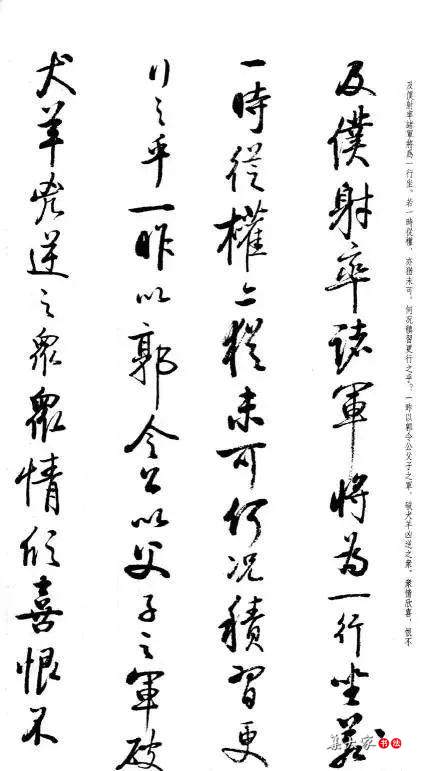 及僕射率諸軍將為一行坐。若一時從權，亦猶未可。何況積習更行之乎？一昨以郭令公父子之軍，破犬羊凶逆之衆，衆情欣喜，恨不
及僕射率諸軍將為一行坐若
一時從權亦猶未可何況積習更
行之乎一昨以郭令公以父子之軍破
犬羊兇逆之衆衆情欣喜恨不
书法